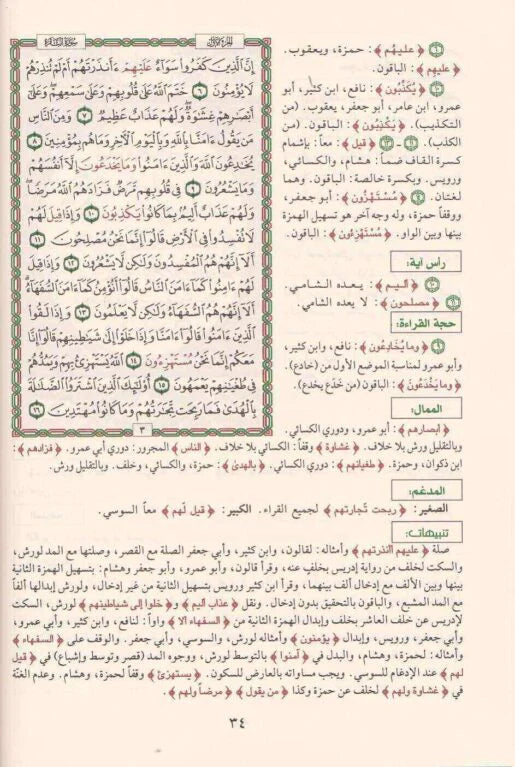 سورة البقرة
الجزء الأول
إِنَّ الَّذِينَ كَفَرُوا سَوَاءٌ عَلَيْهِمْ ءَأَنذَرْتَهُمْ أَمْ لَمْ تُنذِرْهُمْ
لَا يُؤْمِنُونَ ٦ خَتَمَ اللَّهُ عَلَىٰ قُلُوبِهِمْ وَعَلَىٰ سَمْعِهِمْ وَعَلَىٰ
أَبْصَارِهِمْ غِشَاوَةٌ وَلَهُمْ عَذَابٌ عَظِيمٌ ٧ وَمِنَ النَّاسِ
مَن يَقُولُ ءَامَنَّا بِاللَّهِ وَبِالْيَوْمِ الْآخِرِ وَمَا هُم بِمُؤْمِنِينَ ٨
يُخَادِعُونَ اللَّهَ وَالَّذِينَ ءَامَنُوا وَمَا يَخْدَعُونَ إِلَّا أَنفُسَهُمْ
وَمَا يَشْعُرُونَ ٩ فِي قُلُوبِهِم مَّرَضٌ فَزَادَهُمُ اللَّهُ مَرَضًا
وَلَهُمْ عَذَابٌ أَلِيمٌ بِمَا كَانُوا يَكْذِبُونَ ١٠ وَإِذَا قِيلَ لَهُمْ
لَا تُفْسِدُوا فِي الْأَرْضِ قَالُوا إِنَّمَا نَحْنُ مُصْلِحُونَ ١١
أَلَا إِنَّهُمْ هُمُ الْمُفْسِدُونَ وَلَٰكِن لَّا يَشْعُرُونَ ١٢ وَإِذَا قِيلَ
لَهُمْ ءَامِنُوا كَمَا ءَامَنَ النَّاسُ قَالُوا أَنُؤْمِنُ كَمَا ءَامَنَ السُّفَهَاءُ
أَلَا إِنَّهُمْ هُمُ السُّفَهَاءُ وَلَٰكِن لَّا يَعْلَمُونَ ١٣ وَإِذَا لَقُوا
الَّذِينَ ءَامَنُوا قَالُوا ءَامَنَّا وَإِذَا خَلَوْا إِلَىٰ شَيَاطِينِهِمْ قَالُوا إِنَّا
مَعَكُمْ إِنَّمَا نَحْنُ مُسْتَهْزِءُونَ ١٤ اللَّهُ يَسْتَهْزِئُ بِهِمْ وَيَمُدُّهُمْ
فِي طُغْيَانِهِمْ يَعْمَهُونَ ١٥ أُولَٰئِكَ الَّذِينَ اشْتَرَوُا الضَّلَالَةَ
بِالْهُدَىٰ فَمَا رَبِحَت تِّجَارَتُهُمْ وَمَا كَانُوا مُهْتَدِينَ ١٦
٣
﴿عليهُم﴾: حمزة، ويعقوب.
﴿عليهِم﴾: الباقون.
﴿يُكَذِّبُون﴾: نافع، ابن كثير، أبو
عمرو، ابن عامر، أبو جعفر، يعقوب. (من
التكذيب). ﴿يَكْذِبُون﴾: الباقون. (من
الكذب). ﴿قيل﴾: معاً: بإشمام
كسرة القاف ضماً: هشام، والكسائي،
ورويس. وبكسرة خالصة: الباقون. وهما
لغتان. ﴿مُسْتَهْزُون﴾: أبو جعفر،
ووقفاً حمزة، وله وجه آخر هو تسهيل الهمزة
بينها وبين الواو. ﴿مُسْتَهْزِءُون﴾: الباقون.
رأس آية:
﴿أليم﴾: يعده الشامي.
﴿مصلحون﴾: لا يعده الشامي.
حجة القراءة:
﴿وما يُخادِعُون﴾: نافع، وابن كثير،
وأبو عمرو لمناسبة الموضع الأول من (خادع).
﴿وما يَخْدَعُون﴾: الباقون (من خَدَع يخدع).
الممال:
﴿أبصارهم﴾: أبو عمرو، ودوري الكسائي.
وبالتقليل ورش بلا خلاف. ﴿غشاوة﴾ وقفاً: الكسائي بلا خلاف. ﴿الناس﴾ المجرور: دوري أبي عمرو. ﴿فزادهم﴾:
ابن ذكوان، وحمزة. ﴿طغيانهم﴾: دوري الكسائي. ﴿بالهدى﴾: حمزة، والكسائي، وخلف. وبالتقليل ورش.
المدغم:
الصغير: ﴿ربحت تّجارتهم﴾ لجميع القراء. الكبير: ﴿قيل لّهم﴾ معاً السوسي.
تنبيهات:
صلة ﴿عليهم أأنذرتهم﴾ وأمثاله: لقالون، وابن كثير، وأبي جعفر الصلة مع القصر، وصلتها مع المد لورش،
والسكت لخلف من رواية إدريس بخلف عنه، وقرأ قالون، وأبو عمرو، وأبو جعفر وهشام: بتسهيل الهمزة الثانية
بينها وبين الألف مع إدخال ألف بينهما، وقرأ ابن كثير ورويس بتسهيل الثانية من غير إدخال، ولورش إبدالها ألفاً
مع المد المشبع، والباقون بالتحقيق بدون إدخال. ونقل ﴿عذاب أليم﴾ و ﴿خلوا إلى شياطينهم﴾ لورش، السكت
لإدريس عن خلف العاشر بخلف وإبدال الهمزة الثانية من ﴿السفهاء ألا﴾ واواً: لنافع، وابن كثير، وأبي عمرو،
وأبي جعفر، ورويس، وإبدال ﴿يؤمنون﴾ وأمثاله لورش، والسوسي، وأبي جعفر. والوقف على ﴿السفهاء﴾
وأمثاله: لحمزة، وهشام، والبدل في ﴿آمنوا﴾ بالتوسط لورش، ووجوه المد (قصر وتوسط وإشباع) في ﴿قيل
لهم﴾ عند الإدغام للسوسي. ويجب مساواته بالعارض للسكون. ﴿يستهزئ﴾ وقفاً لحمزة، وهشام. وعدم الغنّة
في ﴿غشاوة ولهم﴾ لخلف عن حمزة وكذا ﴿من يقول﴾ ﴿مرضاً ولهم﴾.
٣٤